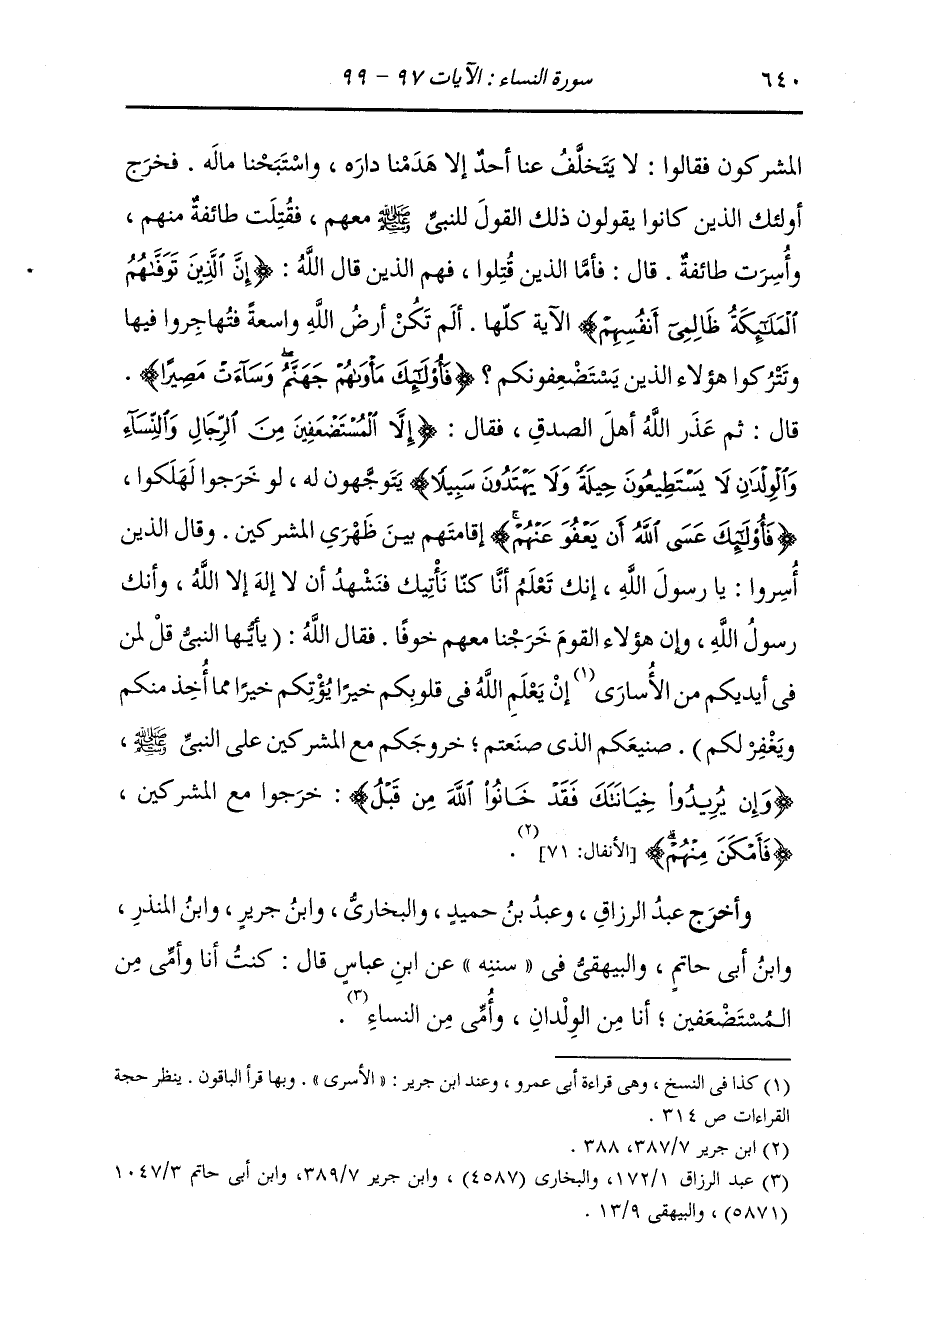 ٦٤٠ سورة النساء : الآيات ٩٧ - ٩٩
المشركون فقالوا : لا يَتَخلَّفُ عنا أحدٌ إلا هَدَمْنا دارَه ، واسْتَبَحْنا مالَه . فخرَج
أولئك الذين كانوا يقولون ذلك القولَ للنبىِّ ﷺ معهم ، فقُتِلَت طائفةٌ منهم ،
وأُسِرَت طائفةٌ . قال : فأمَّا الذين قُتِلوا ، فهم الذين قال اللَّهُ : ﴿إِنَّ ٱلَّذِينَ تَوَفَّىٰهُمُ
ٱلْمَلَـٰٓئِكَةُ ظَالِمِىٓ أَنفُسِهِمْ﴾ الآية كلّها . ألَم تَكُنْ أرضُ اللَّهِ واسعةً فتُهاجِروا فيها
وتَتْرُكوا هؤلاء الذين يَسْتَضْعِفونكم ؟ ﴿فَأُو۟لَـٰٓئِكَ مَأْوَىٰهُمْ جَهَنَّمُ ۖ وَسَآءَتْ مَصِيرًا﴾ .
قال : ثم عَذَر اللَّهُ أهلَ الصدقِ ، فقال : ﴿إِلَّا ٱلْمُسْتَضْعَفِينَ مِنَ ٱلرِّجَالِ وَٱلنِّسَآءِ
وَٱلْوِلْدَٰنِ لَا يَسْتَطِيعُونَ حِيلَةً وَلَا يَهْتَدُونَ سَبِيلًا﴾ يَتَوجَّهون له ، لو خَرَجوا لهَلَكوا ،
﴿فَأُو۟لَـٰٓئِكَ عَسَى ٱللَّهُ أَن يَعْفُوَ عَنْهُمْ ۚ﴾ إقامتَهم بينَ ظَهْرَىِ المشركين . وقال الذين
أُسِروا : يا رسولَ اللَّهِ ، إنك تَعْلَمُ أنَّا كنّا نَأْتِيك فنَشْهدُ أن لا إلهَ إلا اللَّهُ ، وأنك
رسولُ اللَّهِ ، وإن هؤلاء القومَ خَرَجْنا معهم خوفًا . فقال اللَّهُ : ( يأيُّها النبىُّ قلْ لمن
فى أيديكم من الأُسارَى(١) إنْ يَعْلَمِ اللَّهُ فى قلوبِكم خيرًا يُؤْتِكم خيرًا مما أُخِذ منكم
ويَغْفِرْ لكم ) . صنيعَكم الذى صنَعتم ؛ خروجَكم مع المشركين على النبىِّ ﷺ ،
﴿وَإِن يُرِيدُوا۟ خِيَانَتَكَ فَقَدْ خَانُوا۟ ٱللَّهَ مِن قَبْلُ﴾ : خرَجوا مع المشركين ،
﴿فَأَمْكَنَ مِنْهُمْ ۗ﴾ [الأنفال: ٧١](٢) .
وأخرَج عبدُ الرزاقِ ، وعبدُ بنُ حميدٍ ، والبخارىُّ ، وابنُ جريرٍ ، وابنُ المنذرِ ،
وابنُ أبى حاتمٍ ، والبيهقىُّ فى « سننِه » عن ابنِ عباسٍ قال : كنتُ أنا وأمِّى مِن
المُسْتَضْعَفين ؛ أنا مِن الوِلْدانِ ، وأُمِّى مِن النساءِ(٣) .
(١) كذا فى النسخ ، وهى قراءة أبى عمرو ، وعند ابن جرير : « الأسرى » . وبها قرأ الباقون . ينظر حجة
القراءات ص ٣١٤ .
(٢) ابن جرير ٣٨٧/٧، ٣٨٨ .
(٣) عبد الرزاق ١٧٢/١، والبخارى (٤٥٨٧) ، وابن جرير ٣٨٩/٧، وابن أبى حاتم ١٠٤٧/٣
(٥٨٧١) ، والبيهقى ١٣/٩ .